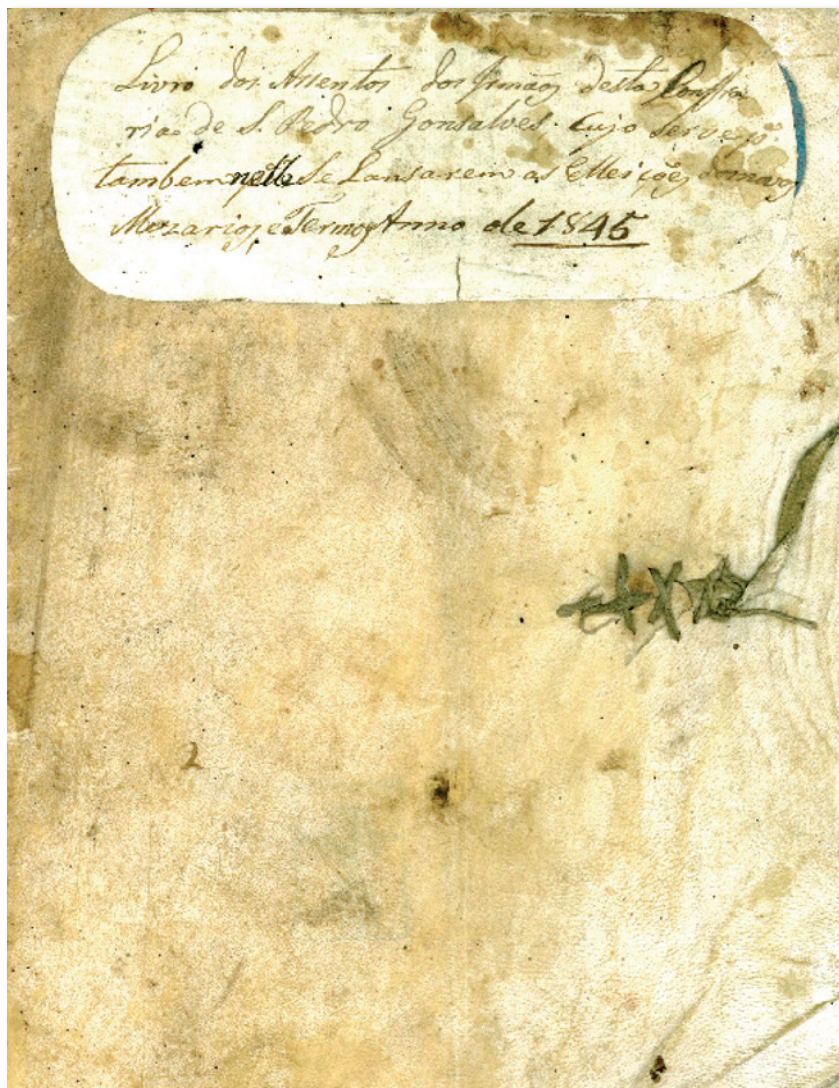 Livro dos Assentos dos Irmãos desta Confra
ria de S. Pedro Gonsalves. Cujo Serve pª
tambem nelle Se Lansarem as Elleições
Mezarios, e Termos Anno de 1845
2